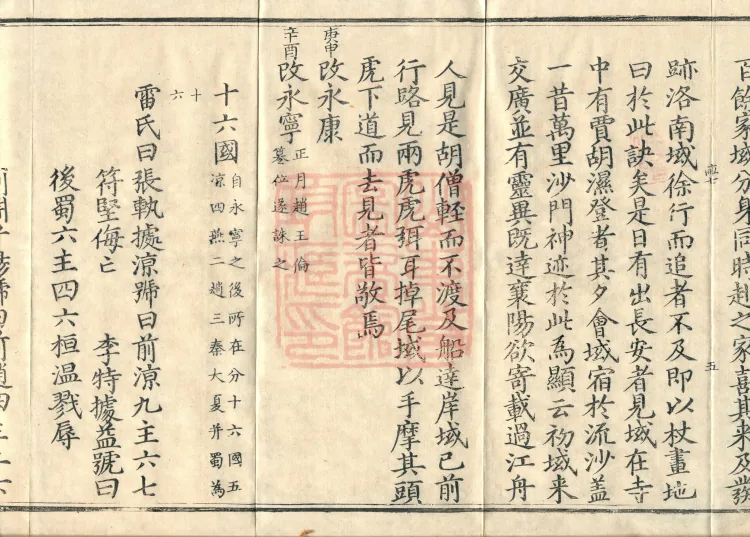 百餘家域分身同時赴之家喜其来及發
跡洛南域徐行而追者不及即以杖畫地
曰於此訣矣是日有出長安者見域在寺
中有賈胡濕登者其夕會域宿於流沙蓋
一昔萬里沙門神迹於此為顯云初域来
交廣並有靈異既達襄陽欲寄載過江舟
五
人見是胡僧軽而不渡及船達岸域已前
行路見兩虎虎弭耳掉尾域以手摩其頭
虎下道而去見者皆敬焉
庚申改永康
辛酉改永寧正月趙王倫
篡位遂誅之
十六國自永寧之後所在分十六國五
凉四燕二趙三秦大夏并蜀為
十六
雷氏曰張執據凉號曰前凉九主六七
符堅侮亡 李特據益號曰
後蜀六主四六桓温戮辱